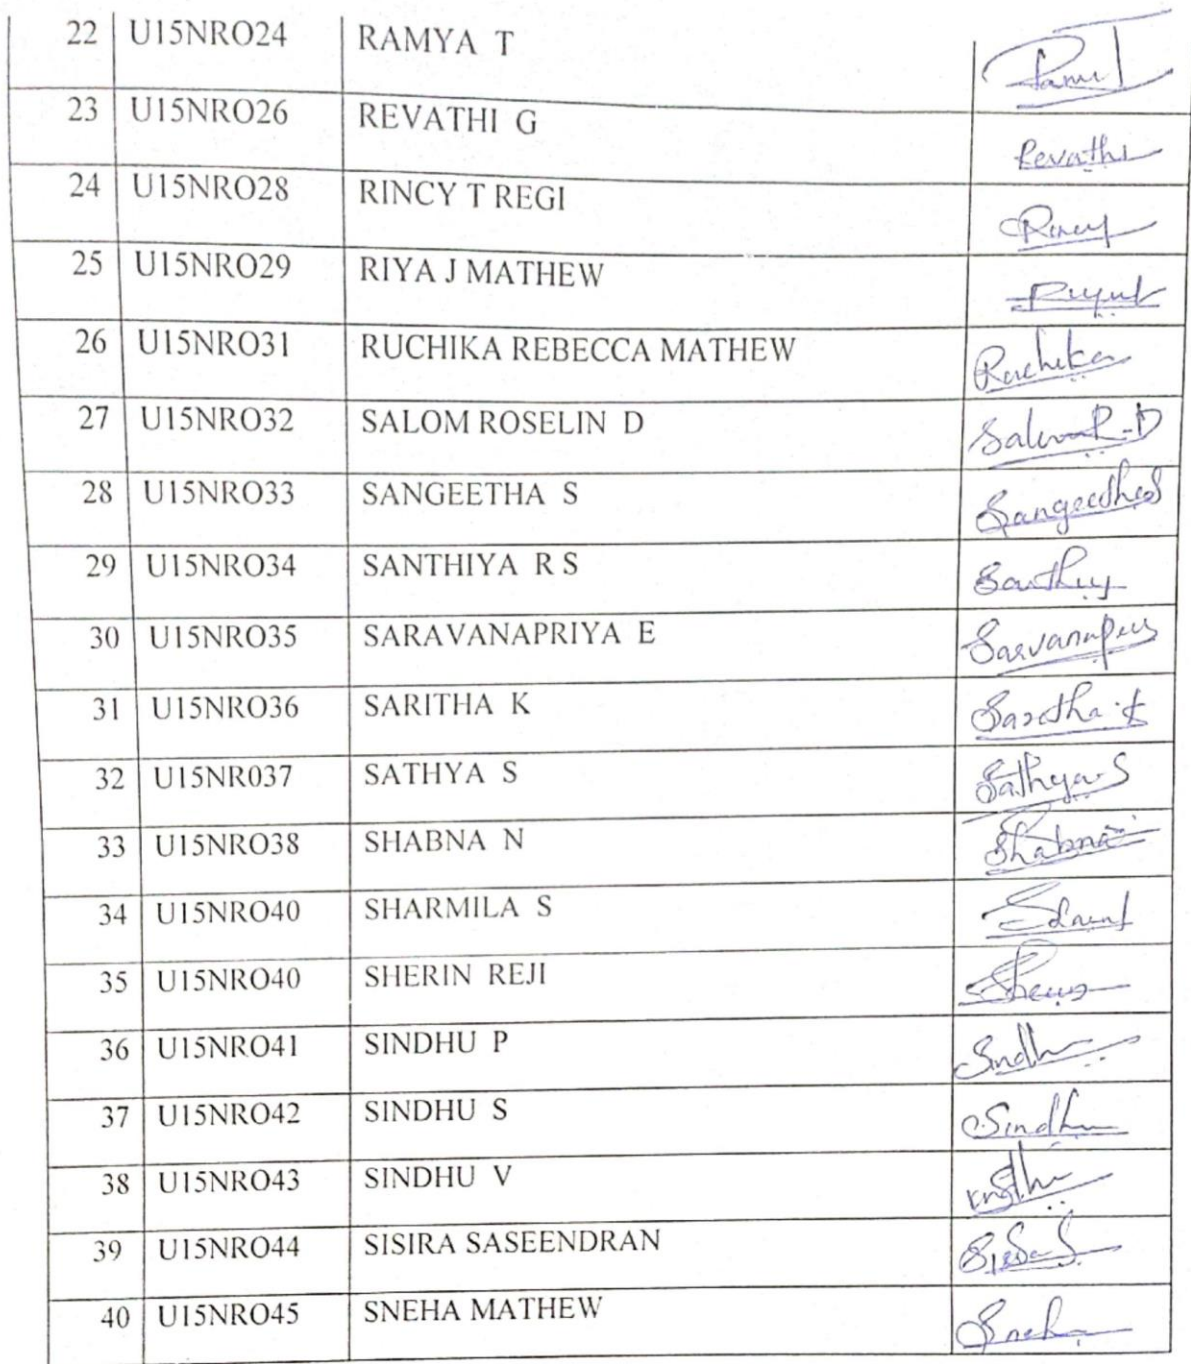 22 U15NRO24 RAMYA T
23 U15NRO26 REVATHI G Revathi
24 U15NRO28 RINCY T REGI Rincy
25 U15NRO29 RIYA J MATHEW
26 U15NRO31 RUCHIKA REBECCA MATHEW Ruchika
27 U15NRO32 SALOM ROSELIN D Salom R.D
28 U15NRO33 SANGEETHA S Sangeetha S
29 U15NRO34 SANTHIYA R S
30 U15NRO35 SARAVANAPRIYA E
31 U15NRO36 SARITHA K Saritha.K
32 U15NR037 SATHYA S Sathya S
33 U15NRO38 SHABNA N Shabna
34 U15NRO40 SHARMILA S
35 U15NRO40 SHERIN REJI
36 U15NRO41 SINDHU P Sindhu
37 U15NRO42 SINDHU S Sindhu
38 U15NRO43 SINDHU V
39 U15NRO44 SISIRA SASEENDRAN
40 U15NRO45 SNEHA MATHEW Sneha